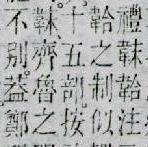 禮韎韐注
韐之制似
十五部按
韎齊魯之
不別葢鄭